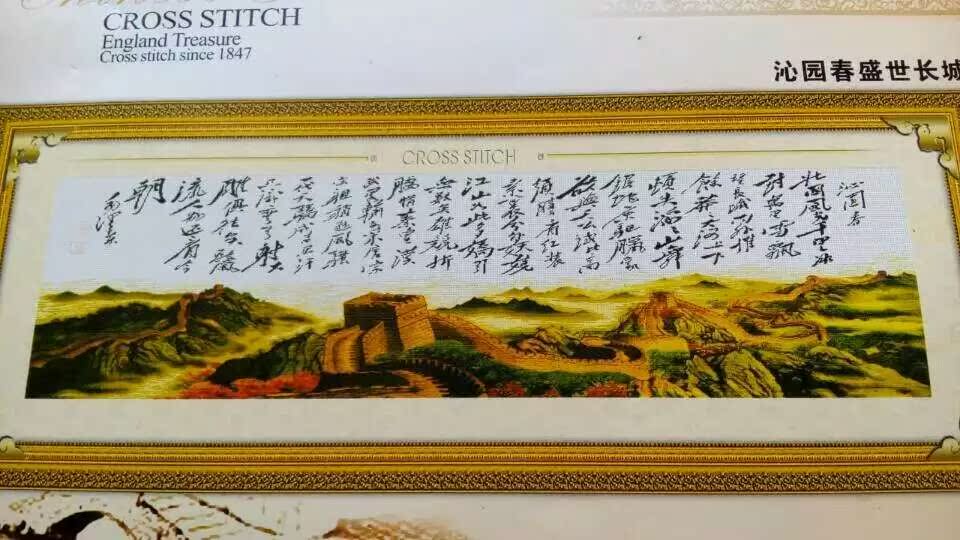 CROSS STITCH
England Treasure
Cross stitch since 1847
沁园春盛世长城
CROSS STITCH
沁園春
北國風光千里冰
封萬里雪飄
望長城内外惟
餘莽莽大河上下
頓失滔滔山舞
銀蛇原驅臘象
欲與天公試比高
須晴日看紅裝
素裹分外妖嬈
江山如此多嬌引
無數英雄競折
腰惜秦皇漢
武略輸文采唐宗
宋祖稍遜風騷
一代天驕成吉思汗
只識彎弓射大
雕俱往矣數風
流人物還看今
朝
毛澤東